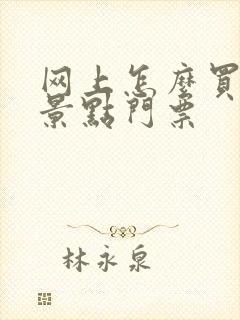 网上怎麽買
景點門票
林永泉